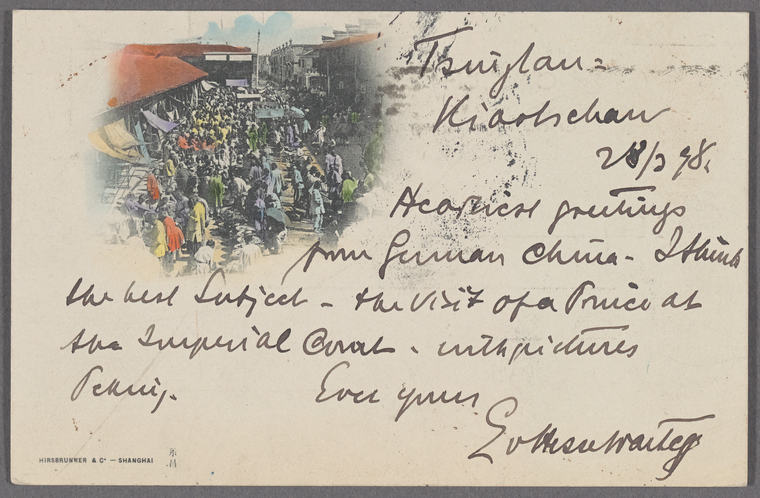 Tsingtau =
Kiaotschau
28/3 98.
Heartiest greetings
from German China - I think
the best Subject - the visit of a Prince at
the Imperial Court - with pictures
Peking.
Ever yours
E v Hesse Wartegg
HIRSBRUNNER & Co — SHANGHAI